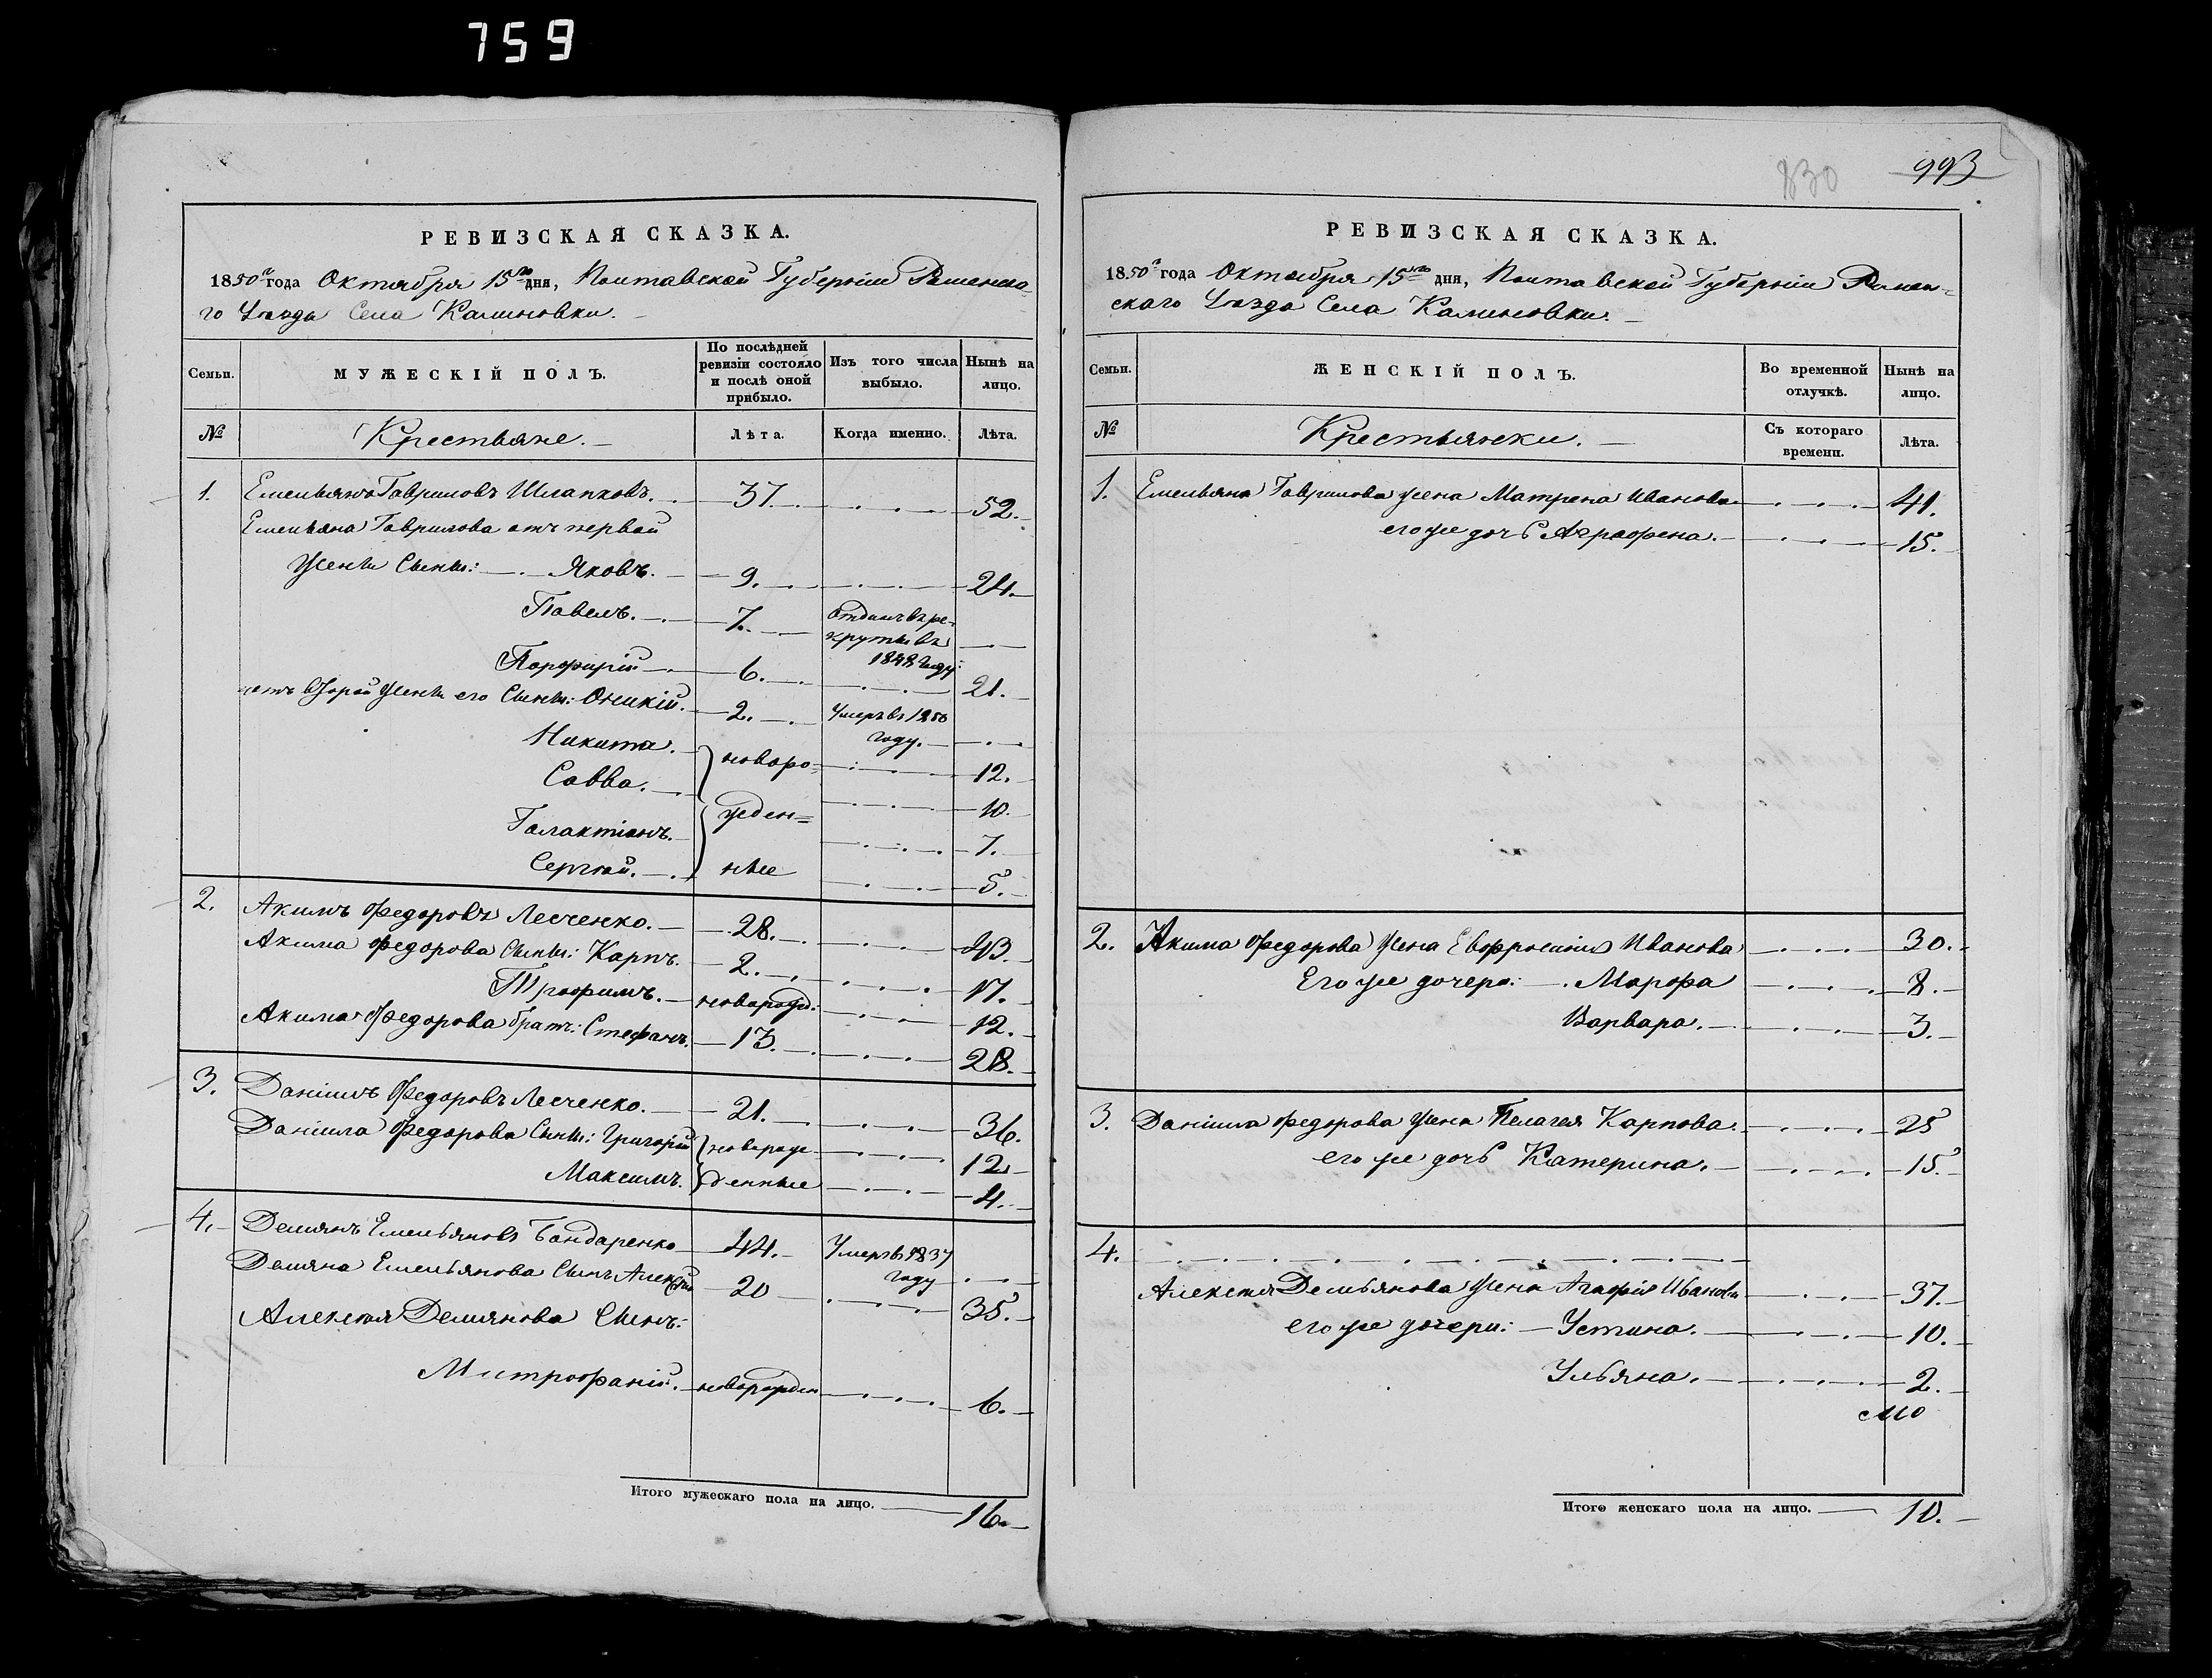 759
РЕВИЗСКАЯ СКАЗКА.
1850 года Октября 15го дня, Полтавской Губерніи Роменска-
го Уезда Села Калиновки.
Семьи.
МУЖЕСКІЙ ПОЛЪ.
По послѣдней ревизіи состояло и послѣ оной прибыло.
Изъ того числа выбыло.
Нынѣ на лицо.
№ Крестьяне. Лѣта. Когда именно. Лѣта.
1. Емельянъ Гавриловъ 37. 52.
Емельяна Гаврилова отъ первой
жены Сыны: Яковъ. 9. 24.
Павелъ. 7. отданъ въ ре-
круты въ
1848 году
Порфирій 6. 21.
отъ второй жены его Сыны: Оникій. 2. Умеръ въ 1850
году.
Никита. новоро- 12.
Савва. 10.
жден=
Галактіонъ. 7.
Сергѣй. ные 5.
2. Акимъ Федоровъ Лесченко. 28. 43.
Акима Федорова Сыны: Карпъ. 2. 17.
Трофимъ. новорожд: 12.
Акима Федорова братъ: Стефанъ. 13. 28.
3. Даніилъ Федоровъ Лесченко. 21. 36.
Даніила Федорова Сыны: Григорій новорож- 12
Максимъ. денные 4.
4. Демянъ Емельяновъ Бондаренко 44. Умеръ въ 1837
году
Демяна Емельянова Сынъ Алексѣй 20 35.
Алексѣя Демянова Сынъ:
Митрофаній. новорожден 6.
Итого мужескаго пола на лицо. 16.
830 993
РЕВИЗСКАЯ СКАЗКА.
1850 года Октября 15го дня, Полтавской Губерніи Ромен-
скаго Уезда Села Калиновки.
Семьи.
ЖЕНСКІЙ ПОЛЪ.
Во временной отлучкѣ.
Нынѣ на лицо.
№ Крестьянки. Съ котораго времени. Лѣта.
1. Емельяна Гаврилова жена Матрена Иванова 41.
его же дочь Аграфена. 15.
2. Акима Федорова жена Евфросинія Иванова 30.
Его же дочери: Марфа 8.
Варвара. 3.
3. Даніила Федорова жена Пелагея Карпова. 25
его же дочь Катерина. 15.
4.
Алексѣя Демьянова жена Агафія Иванова 37.
его же дочери: Устина. 10.
Ульяна. 2.
Итого женскаго пола на лицо. 10.